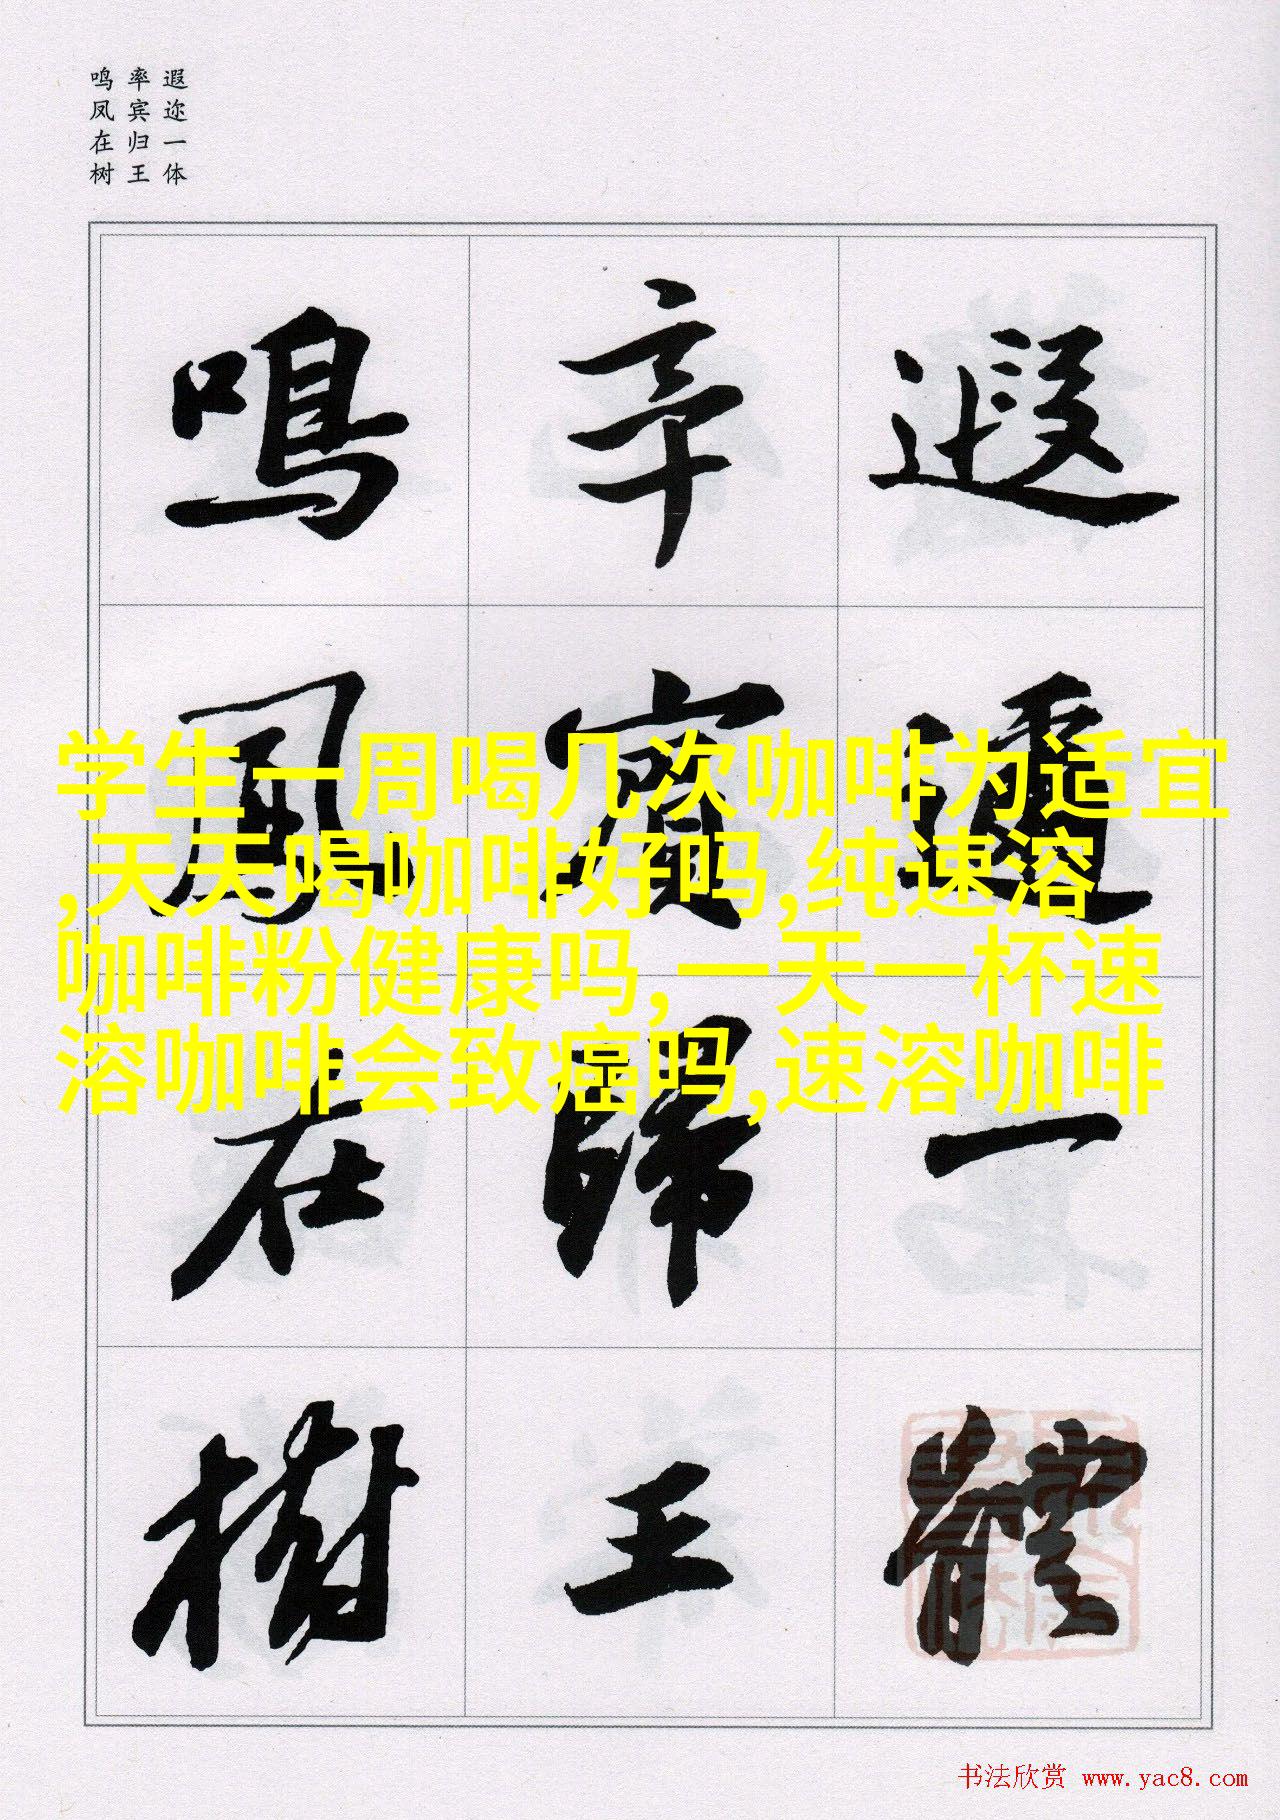 遐迩一体
率宾归王
鸣凤在树
遐邇一體
率賓歸王
鳴鳳在樹
学生一周喝几次咖啡为适宜
,天天喝咖啡好吗,纯速溶
咖啡粉健康吗,一天一杯速
溶咖啡会致癌吗,速溶咖啡
书法欣赏 www.yac8.com